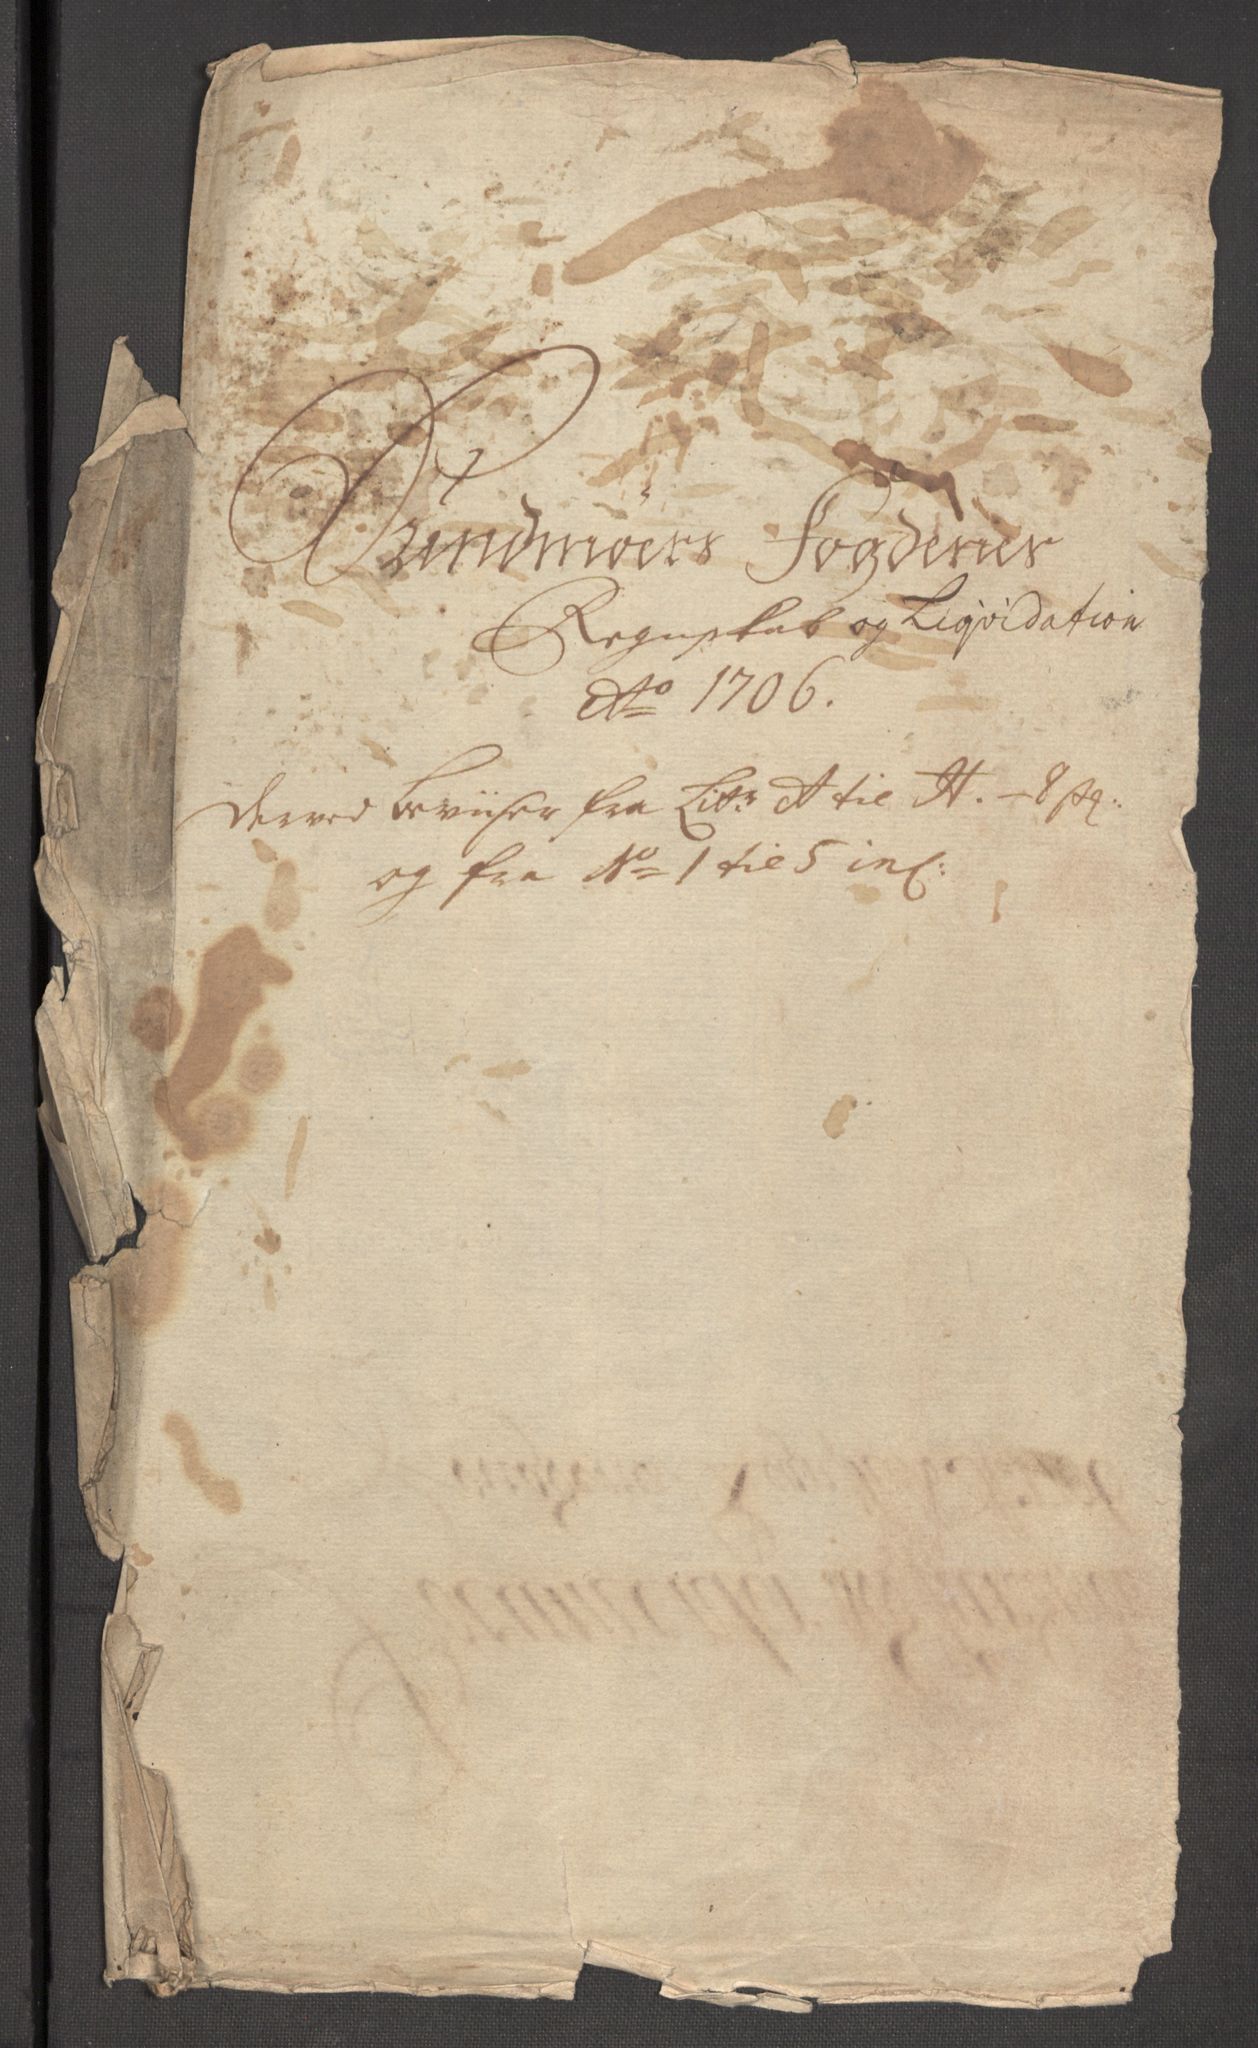 Sundmöers Fogderies
Regnskab og Liqvidation
Ao 1706.
derved beviiser fra Litr A til H. - 8 st:
og fra No 1 til 5 incl: